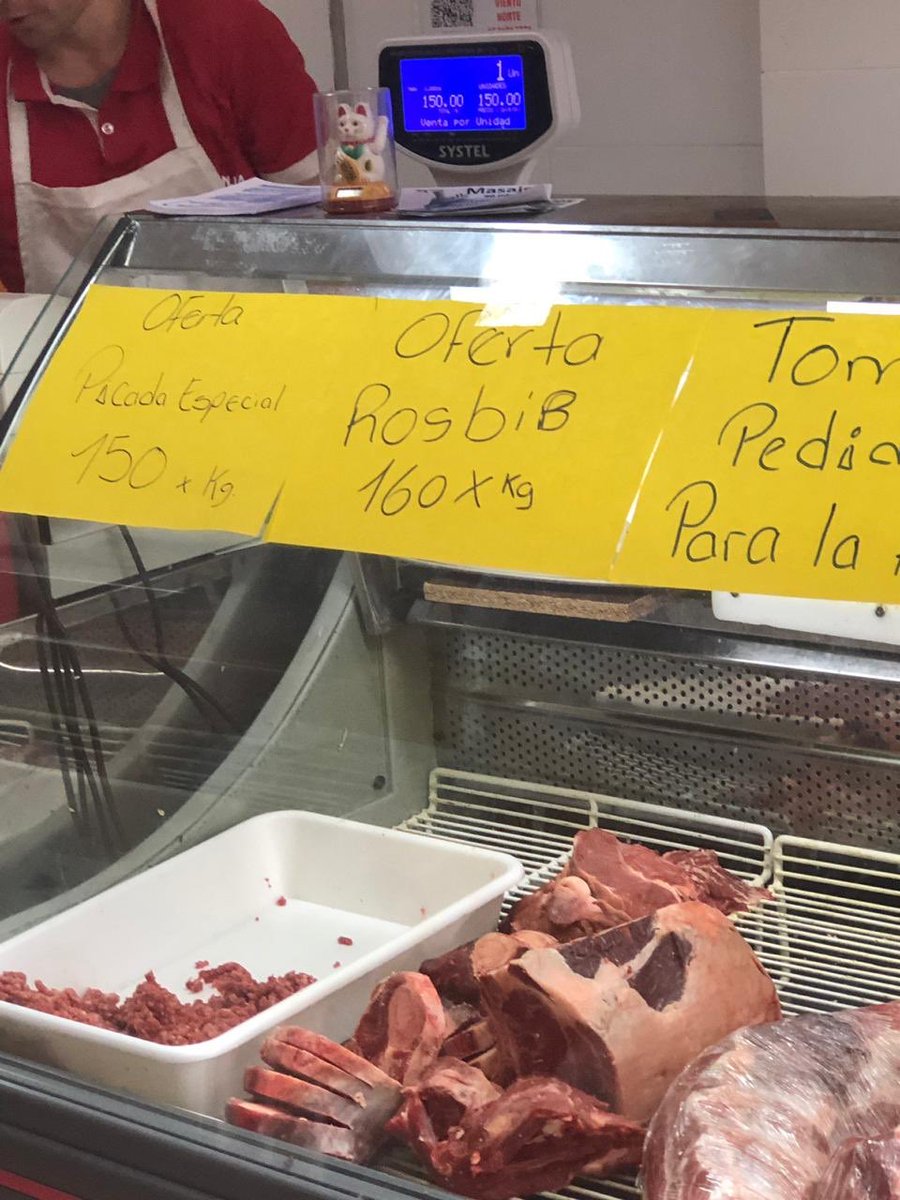 VIENTO
NORTE
1 Un
150.00 150.00
Venta por Unidad
SYSTEL
Masaj
Oferta
Picada Especial
150 x Kg
Oferta
RosbiB
160 x Kg
Tom
Pedid
Para la